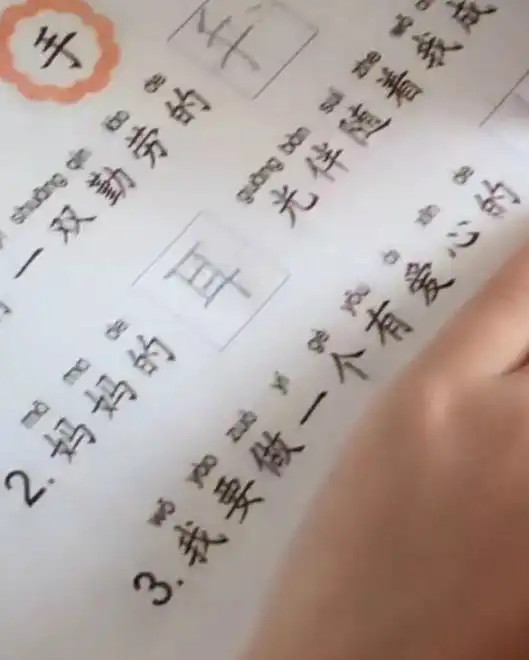 手
shuāng qín láo de
一双勤劳的手
mā ma de
2. 妈妈的耳
guāng bàn suí zhe wǒ
光伴随着我成
wǒ yào zuò yí gè yǒu ài xīn de
3. 我要做一个有爱心的